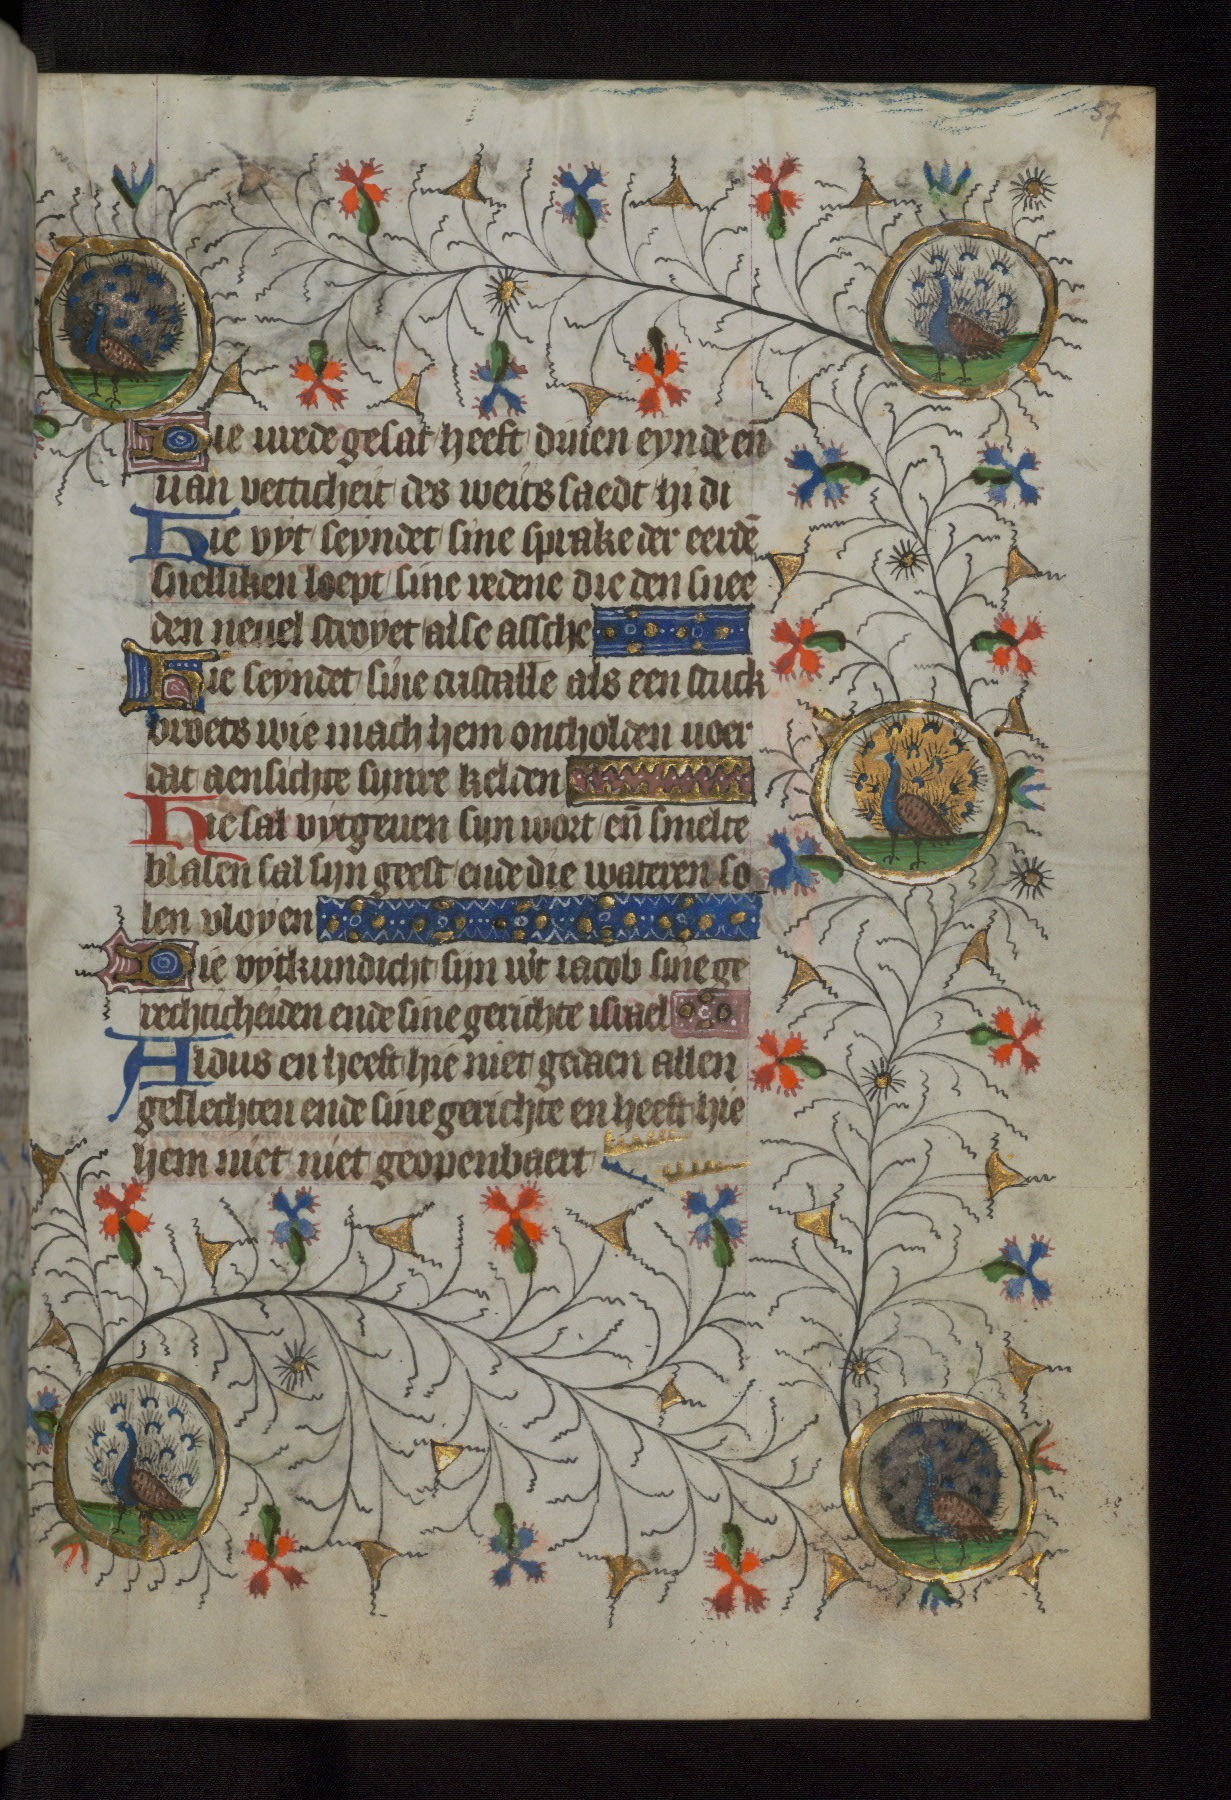 57
Die vrede gesat heeft dinen eynde eñ
uan vetticheit des weits saedt hi di
Hie vyt seyndet sine sprake der eerdē
snelliken loept sine redene die den snee
den neuel stroyet alse assche
Hie seyndet sine cristalle als een stuck
broets wie mach hem ontholden voer
dat aensichte synre kelden
Hie sal vytgeuen syn wort eñ smelte
blasen sal syn geest ende die wateren so
len vloyen
Die vytkundicht syn wt iacob sine ge
rechticheiden ende sine gerichte israel
Aldus en heeft hie niet gedaen allen
geslechten ende sine gerichte en heeft hie
hem niet niet geopenbaert